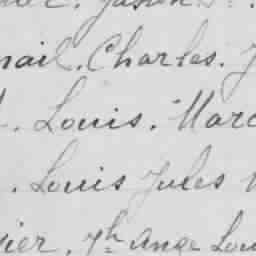 mail. Charles. J
. Louis. Marc
. Louis Jules
ier. Th Ange Lou